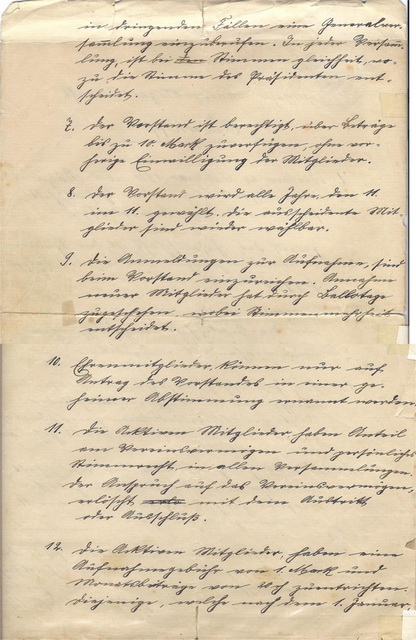 in dringenden Fällen eine Generalver-
sammlung einzuberufen. In jeder Versam-
lung, ist bei Stimmengleichheit, wo-
zu die Stimme des Präsidenten ent-
scheidet.
7. Der Vorstand ist berechtigt, über Beträge
bis zu 10 Mark zu verfügen, ohne vor-
herige Einwilligung der Mitglieder.
8. Der Vorstand wird alle Jahre, den 11.
im 11. gewählt. die ausscheidente Mit-
glieder sind wieder wählbar.
9. Die Anmeldungen zur Aufnahme, sind
beim Vorstand einzureichen. Annahme
neuer Mitglieder hat durch Ballotage
zugeschehen, wobei Stimmenmehrheit
entscheidet.
10. Ehrenmitglieder können nur auf
Antrag des Vorstandes in einer ge-
heimer Abstimmung ernannt werden.
11. Die Aktiven Mitglieder haben Anteil
am Vereinsvermögen und persönlich
Stimmrecht in allen Versammlungen.
Der Anspruch auf das Vereinsvermögen
erlöscht mit dem Austritt
oder Ausschluß.
12. Die Aktiven Mitglieder, haben eine
Aufnahmegebühr von 1. Mark und
Monatsbeträge von zuentrichten.
Diejenige, welche nach dem 1. Januar